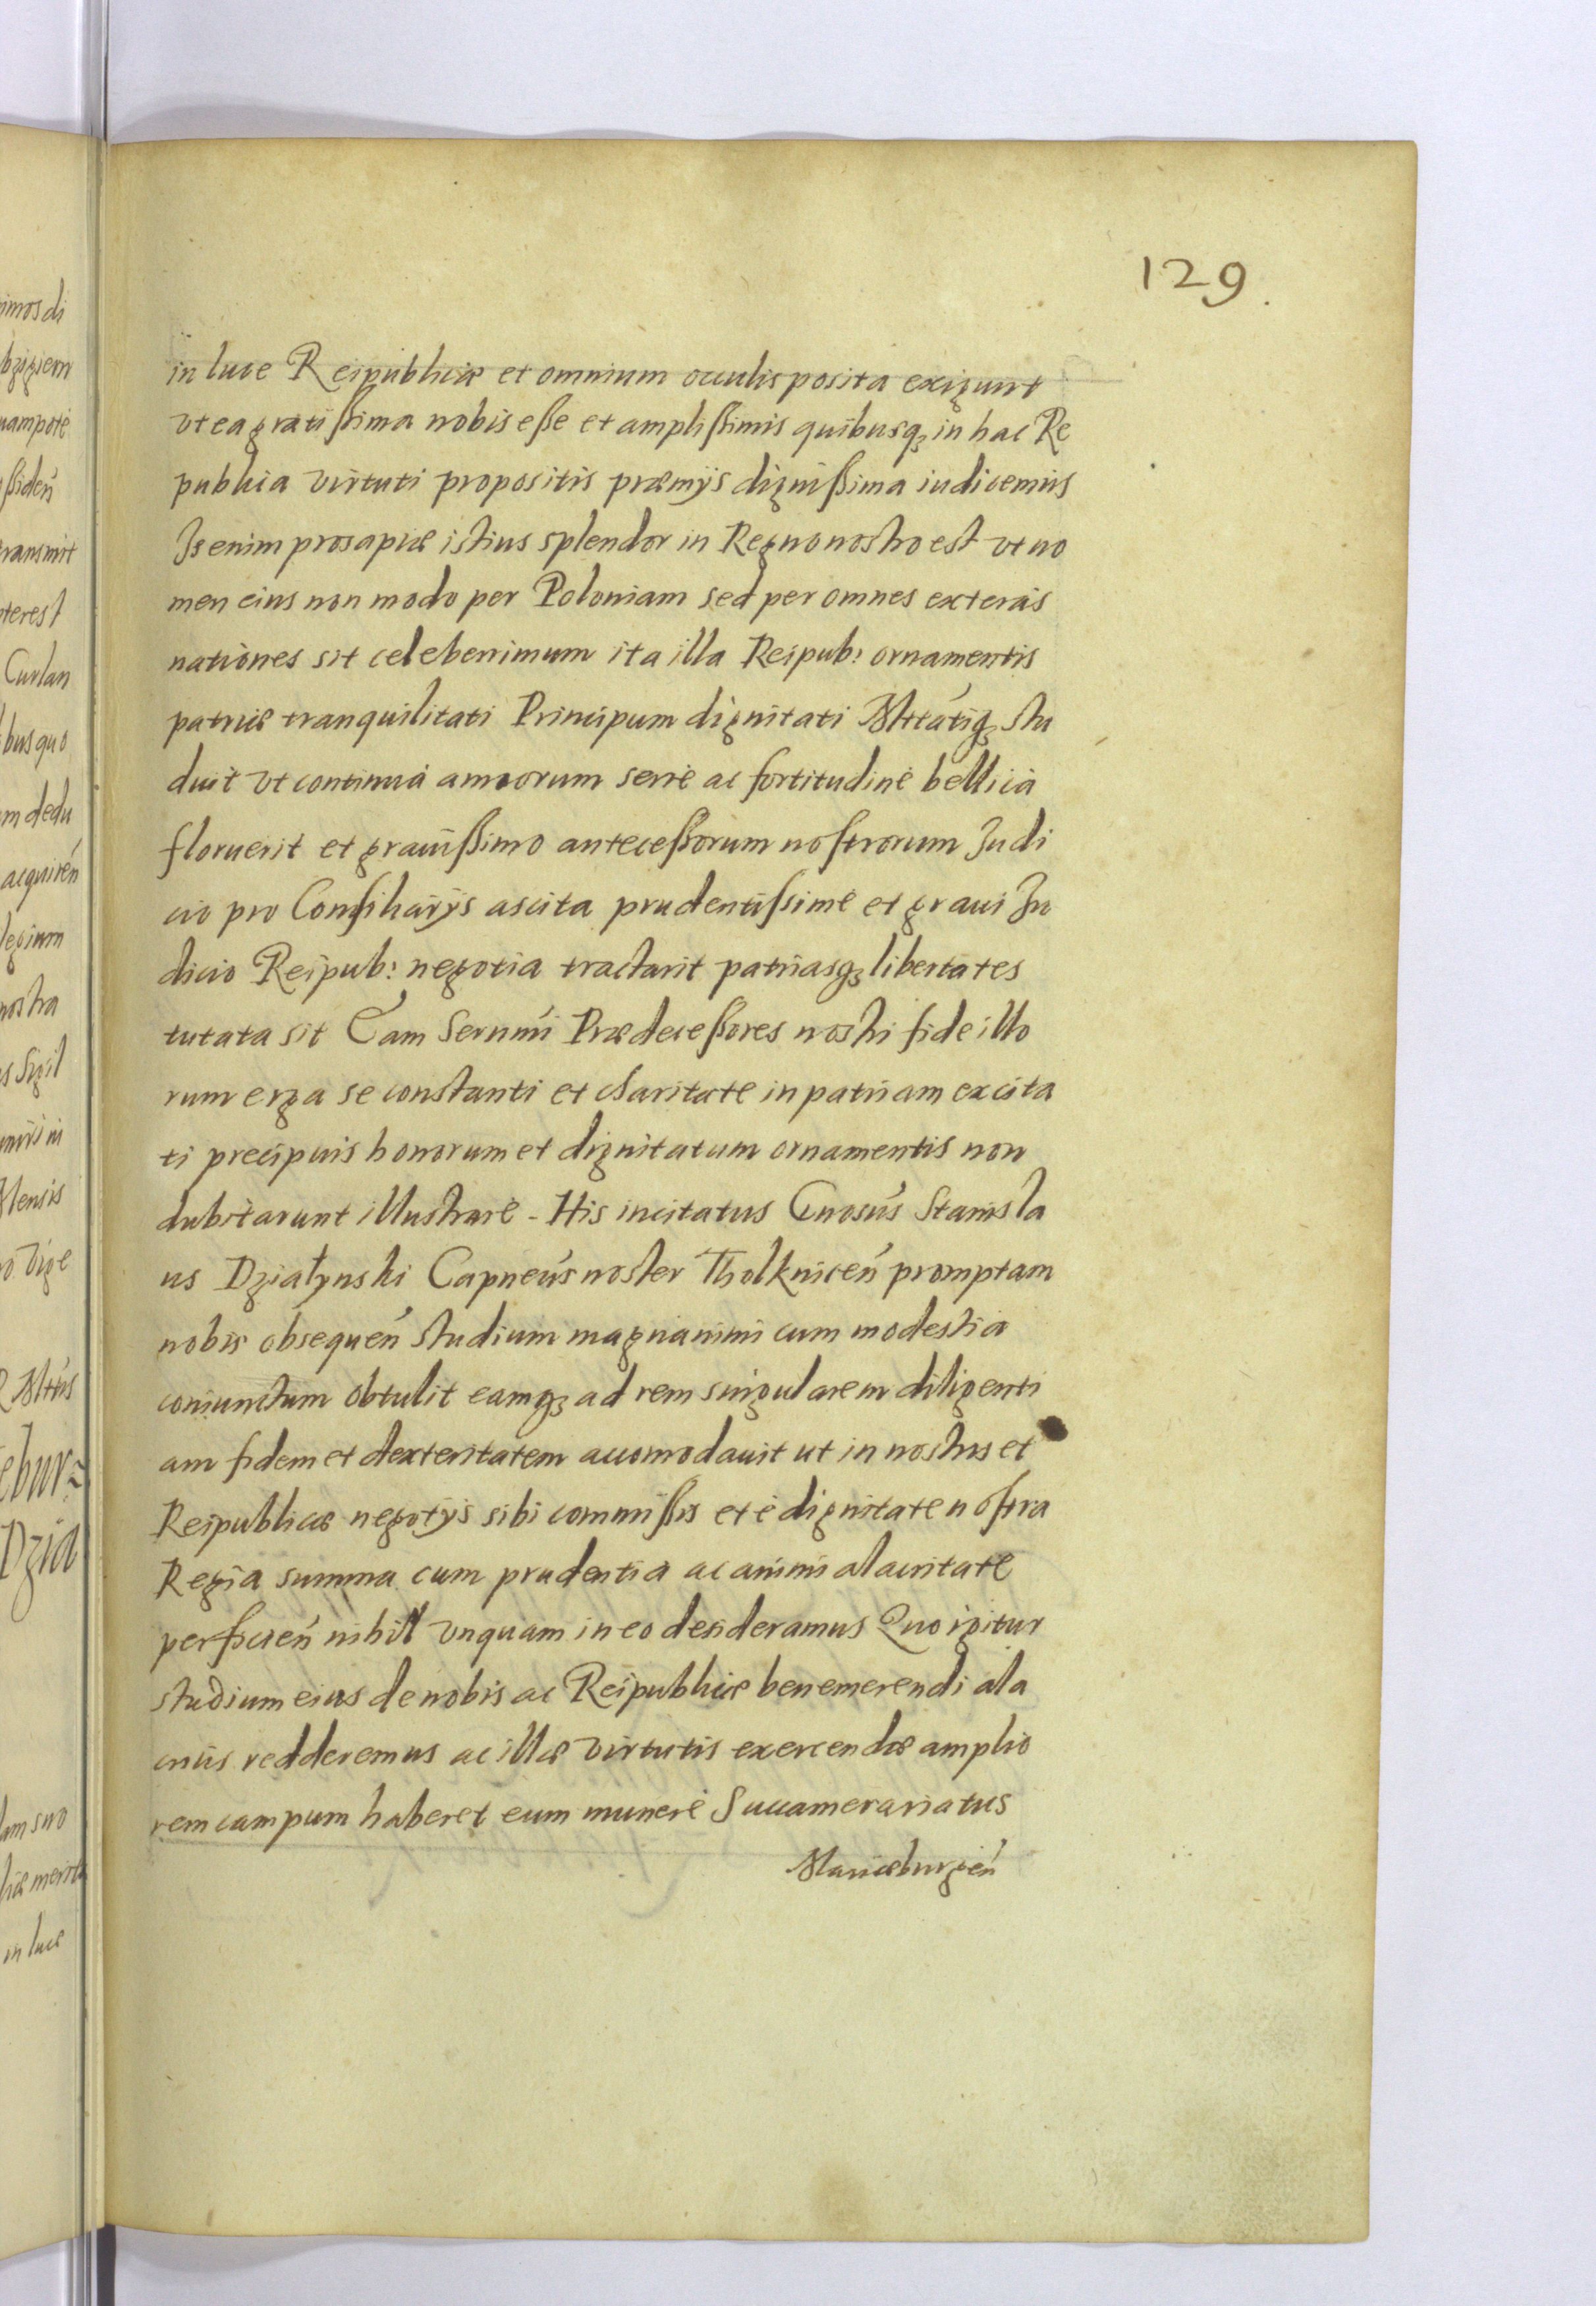 129.
in luce Reipublicæ et omnium occulis posita exigunt
vt ea gratißima nobis eße et amplißimis quibusq₃ in hac Re
publica virtuti propositis præmÿs dignißima iudicemus
Is enim prosapiæ istius splendor in Regno nostro est vt no
men eius non modo per Poloniam sed per omnes exteras
nationes sit celeberrimum ita illa Reipub: ornamentis
patriæ tranquilitati Principum dignitati Mttátiq₃ stu
duit vt continuá annorum serie ac fortitudine bellica
floruerit et grauißimo anteceßorum nostrorum Judi
cio pro Consiliarÿs ascita prudentißime et graui Ju
dicio Reipub: negotia tractarit patriasq₃ libertates
tutata sit Eam Sernmi Prædeceßores nostri fide illo
rum erga se constanti et charitate in patriam excita
ti precipuis honorum et dignitatum ornamentis non
dubitarunt illustrare - His incitatus Gnosús Stanisla
us Działynski Capneús noster Tholknicen̄ promptam
nobis obsequen̄ studium magnanimi cum modestia
coniunctum obtulit eamq₃ ad rem singularem diligenti
am fidem et dexteritatem accomodauit ut in nostris et
Reipublicæ negotÿs sibi commißis et è dignitate nostra
Regia summa cum prudentia ac animi alacritate
perficien̄ nihil vnquam in eo desideramus Quo igitur
studium eius de nobis ac Reipublicæ benemerendi ala
crius redderemus ac illæ virtutis exercendæ amplio
rem campum haberet eum munere Succamerariatus
Mariæburgén
imos di
bzigiem
uampote
ßiden̄
transmit
nterest
Curlan
bus quo
m dedu
acquirén
legium
nostra
s Sigil
Mensis
o. Vige
R Mttis
ebur
Dzia
am suo
liæ merita
in luce